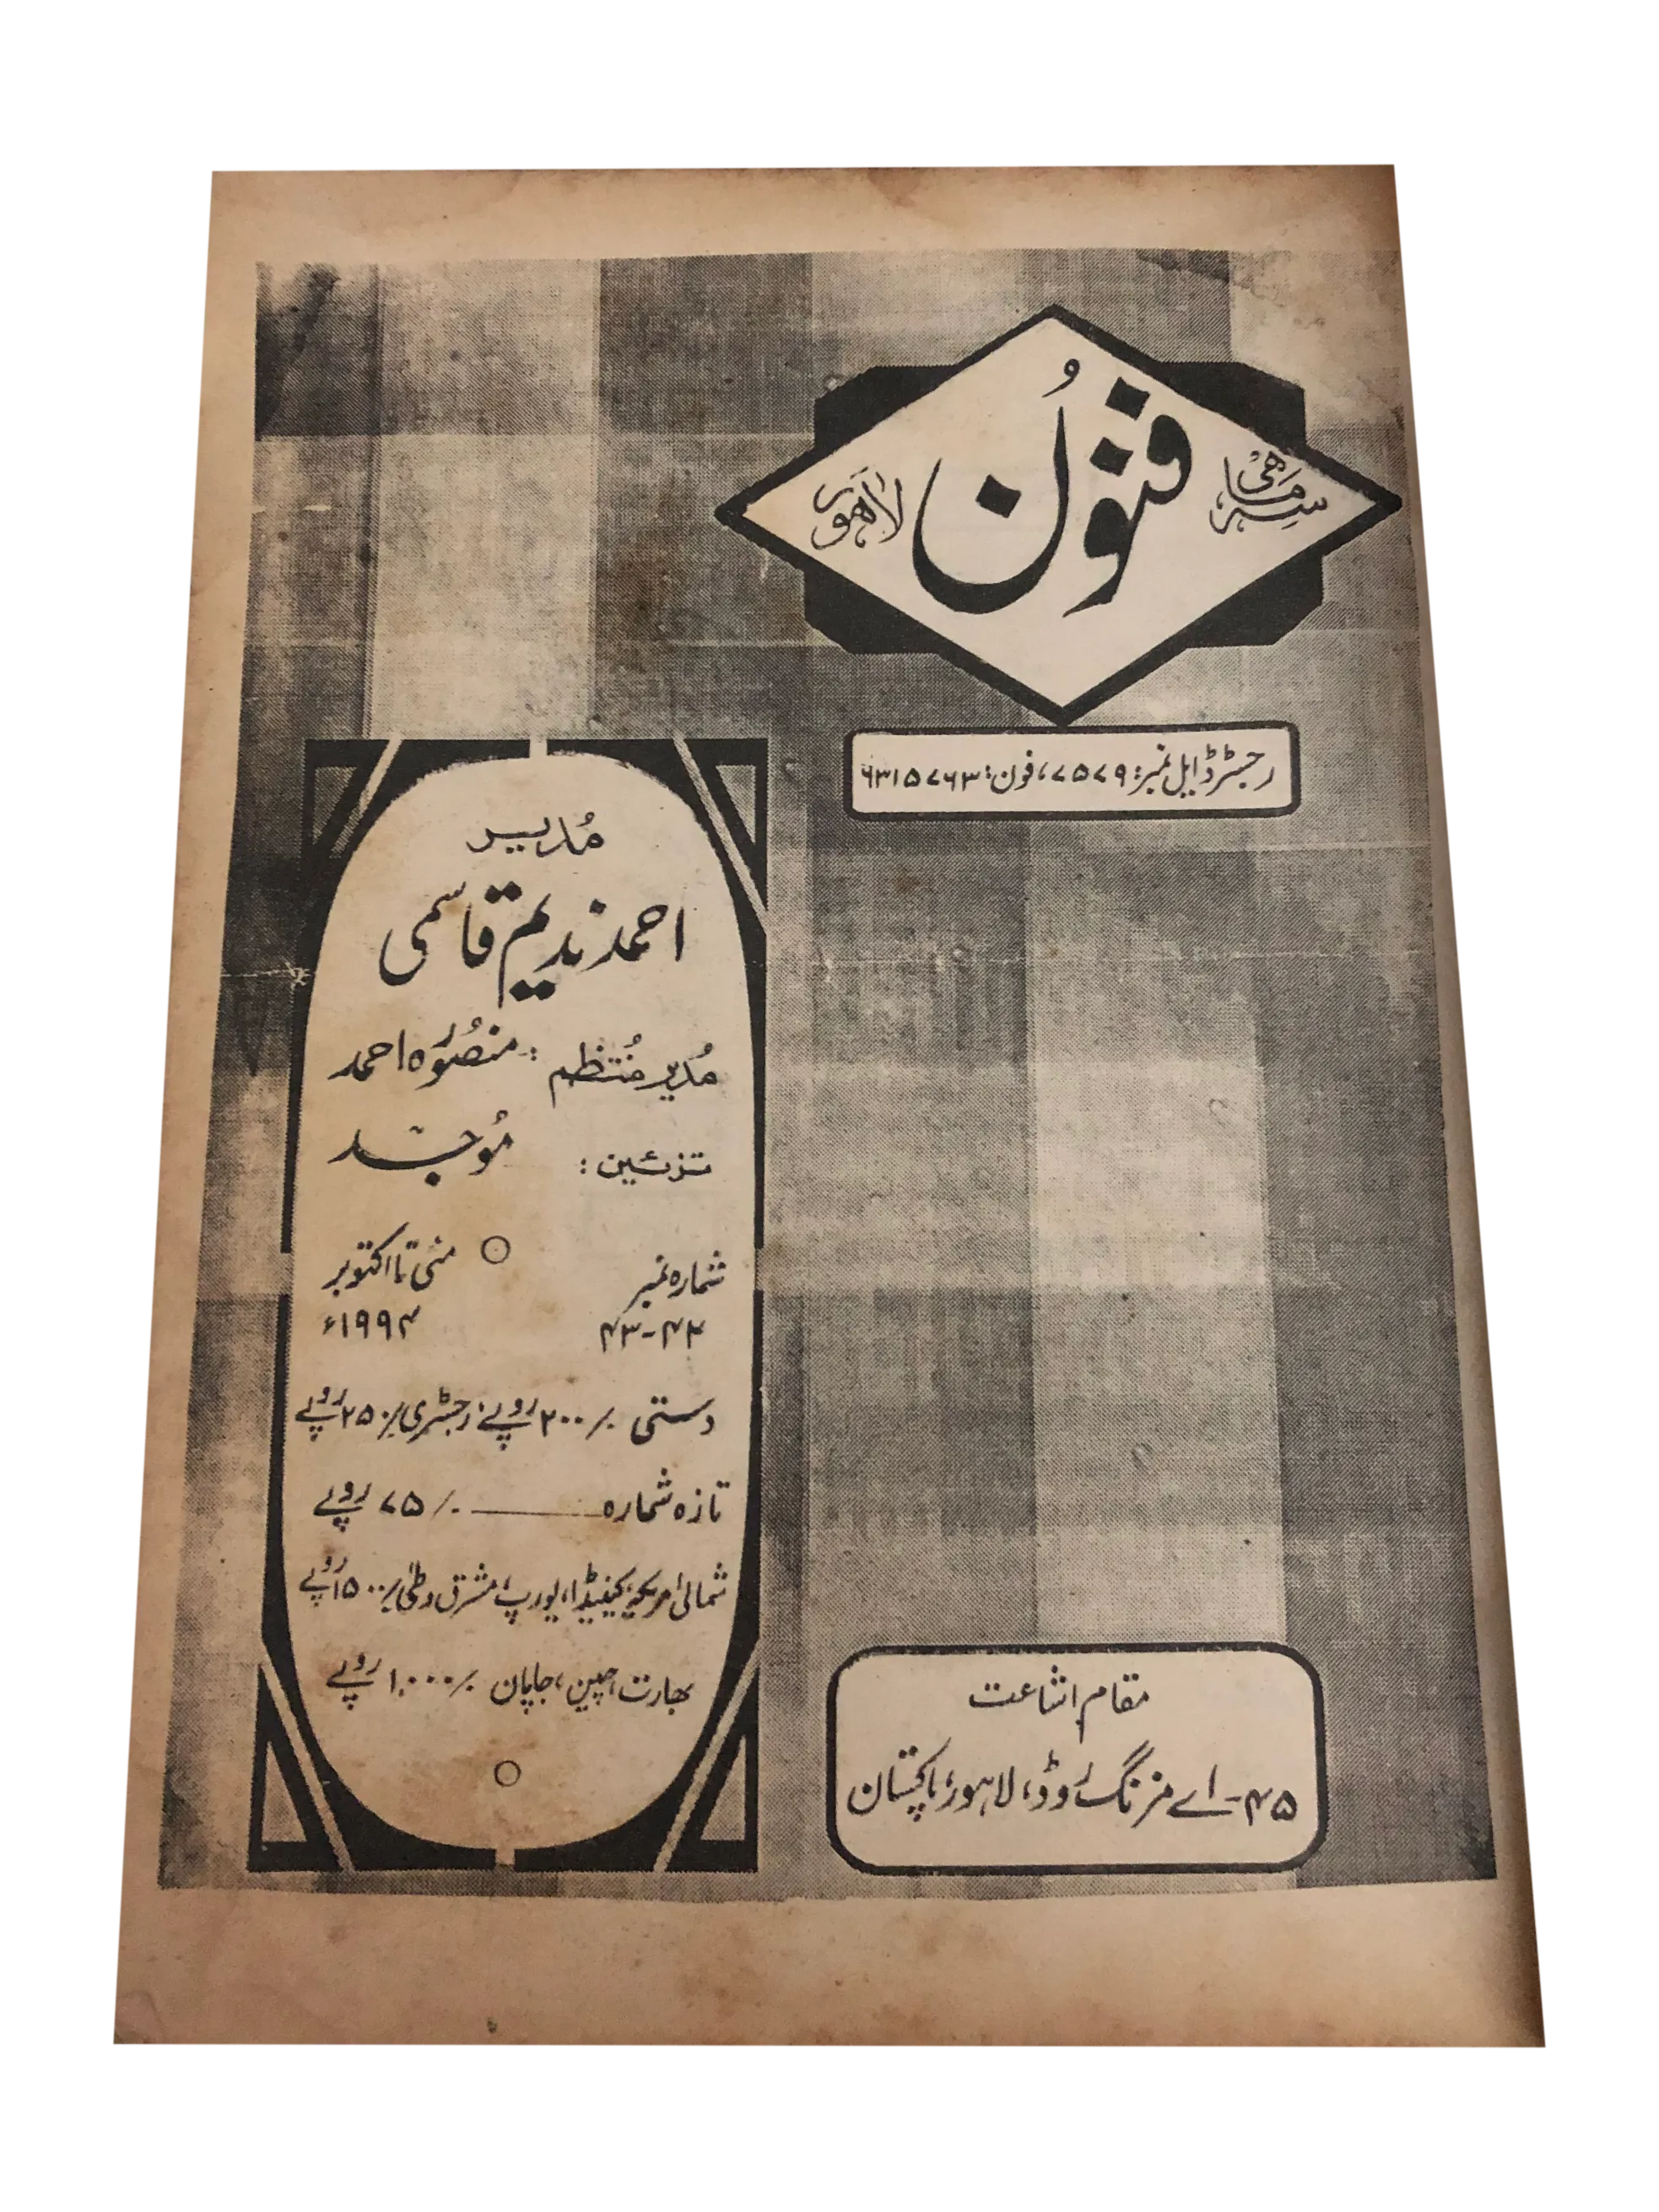 سہ ماہی
فنون
لاہور
رجسٹرڈ ایل نمبر: ۷۵۷۹، فون: ۶۳۱۵۷۶۳
مُدیر
احمد ندیم قاسمی
مُدیر مُنتظم : منصُورہ احمد
تزئین : مُوجد
شمارہ نمبر ○ مئی تا اکتوبر
۴۲-۴۳ ۱۹۹۴ء
دستی ۲۰۰/- روپے؛ رجسٹری ۲۵۰/- روپے
تازہ شمارہ ــــــــ ۷۵/- روپے
شمالی امریکہ، کینیڈا، یورپ، مشرق وسطیٰ ۱۵۰۰/- روپے
بھارت، چین، جاپان ۱۰۰۰/- روپے
مقام اشاعت
۴۵-اے مزنگ روڈ، لاہور، پاکستان